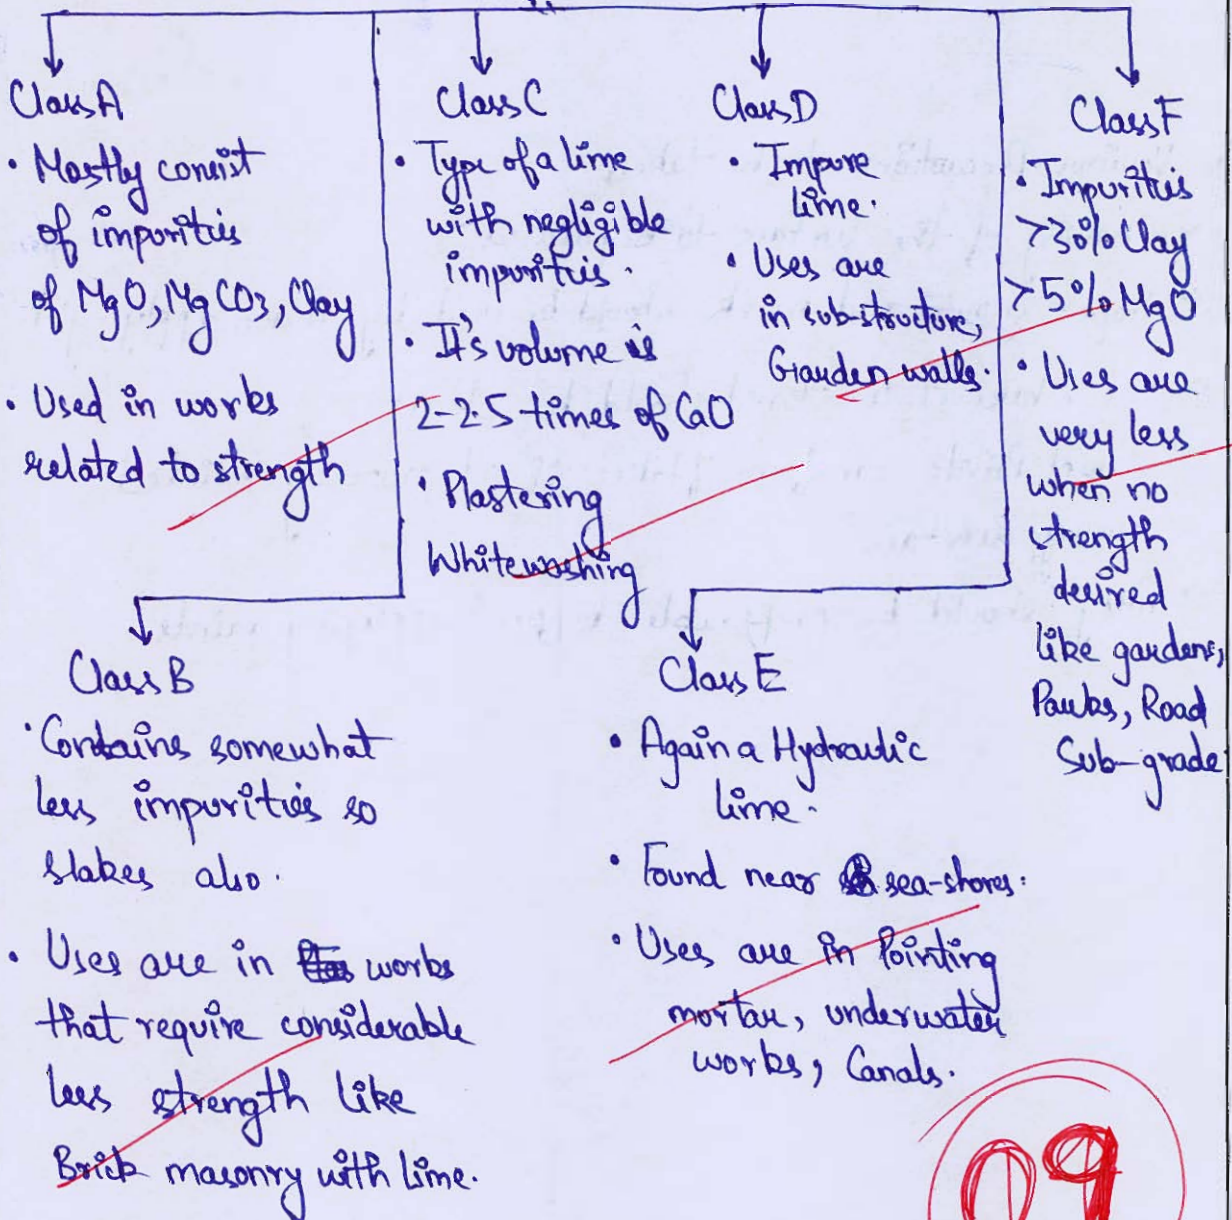 Class A
• Mostly consist
of impurities
of MgO, MgCO3, Clay
• Used in works
related to strength
Class C
• Type of a lime
with negligible
impurities.
• It's volume is
2-2.5 times of CaO
• Plastering
Whitewashing
Class D
• Impure
lime.
• Uses are
in sub-structure,
Garden walls.
Class F
• Impurities
>30% Clay
>5% MgO
• Uses are
very less
when no
strength
desired
like gardens,
Parks, Road
Sub-grade
Class B
• Contains somewhat
less impurities so
slakes also.
• Uses are in works
that require considerable
less strength like
Brick masonry with lime.
Class E
• Again a Hydraulic
lime.
• Found near sea-shores.
• Uses are in Pointing
mortar, underwater
works, Canals.
09